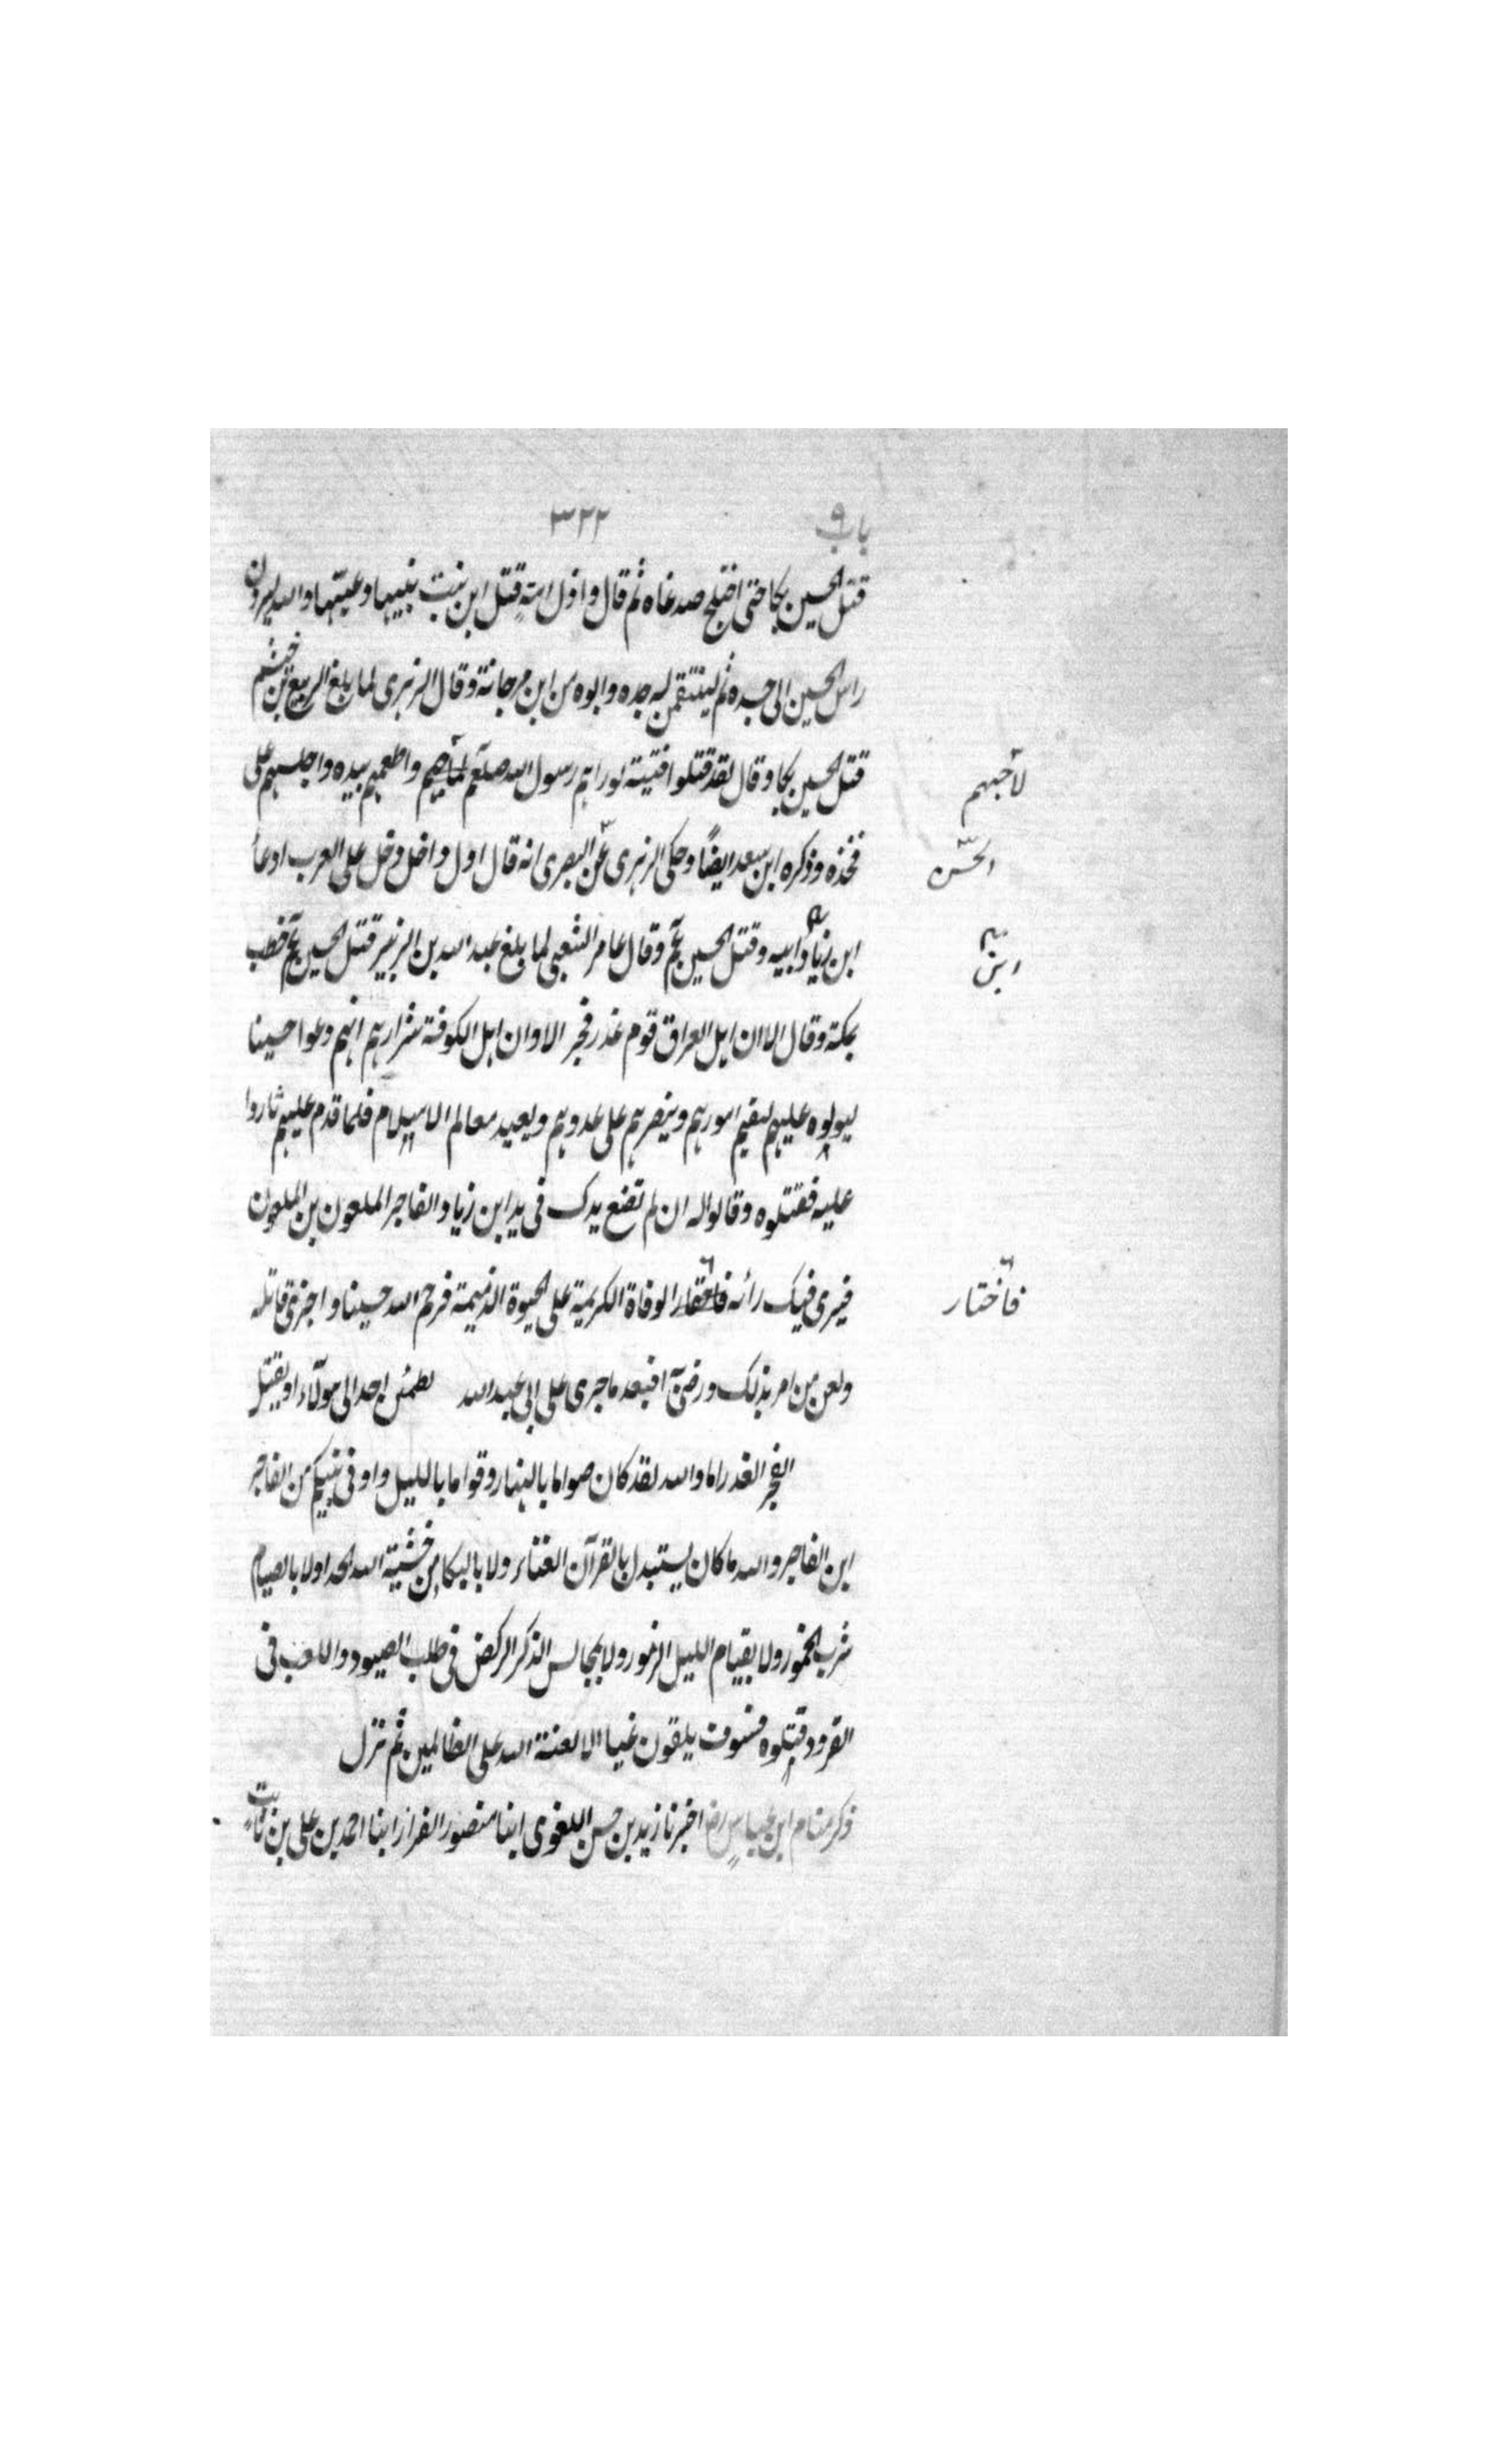 باب ٩ ٣٢٢
قتل الحسين بكا حتى اختلج صدغاه ثم قال واذل امة قتل ابن بنت نبيها وعيتها والله ليردن
راس الحسين الى جسده ثم لينتقمن له جده وابوه من ابن مرجانة وقال الزهرى لما بلغ الربيع بن خيثم
قتل الحسين بكا وقال لقد قتلوا فتية لو راهم رسول الله صلعم واطعمهم بيده واجلسهم على
لأحبهم
فخذه وذكره ابن سعد ايضًا وحكى الزهرى عن البصرى انه قال اول داخل دخل على العرب ادعا
الحسن
ابن زياد ابيه وقتل الحسين عم وقال عامر الشعبى لما بلغ عبد الله بن الزبير قتل الحسين عم خطب
ابن
بمكة وقال الا ان اهل العراق قوم غدر فجر الا وان اهل الكوفة شرارهم انهم دعوا حسينا
ليولوه عليهم ليقيم امورهم وينصرهم على عدوهم ويعيد معالم الاسلام فلما قدم عليهم ثاروا
عليه فقتلوه وقالوا له ان لم تضع يدك فى يد ابن زياد الفاجر الملعون بن الملعون
فيرى فيك رائه الوفاة الكريمة على الحيوة الذميمة فرحم الله حسينا واخزى قاتله
فاختار
ولعن من امر بذلك ورضى افبعد ما جرى على ابى عبد الله يطمئن احد الى هولاء او يقتل
الفجر الغدر اما والله لقد كان صواما بالنهار وقواما بالليل واوفى بنبيكم من الفاجر
ابن الفاجر والله ما كان يستبدل بالقرآن الغناء ولا بالبكا من خشية الله الحدا ولا بالصيام
شرب الخمور ولا بقيام الليل الزمور ولا بمجالس الذكر الركض فى طلب الصيود واللعب فى
القرود قتلوه فسوف يلقون غيا الا لعنة الله على الظالمين ثم نزل
ذكر منام ابن عباس رض اخبرنا زيد بن حسن اللغوى ابنا منصور القزاز ابنا احمد بن على بن ثابت